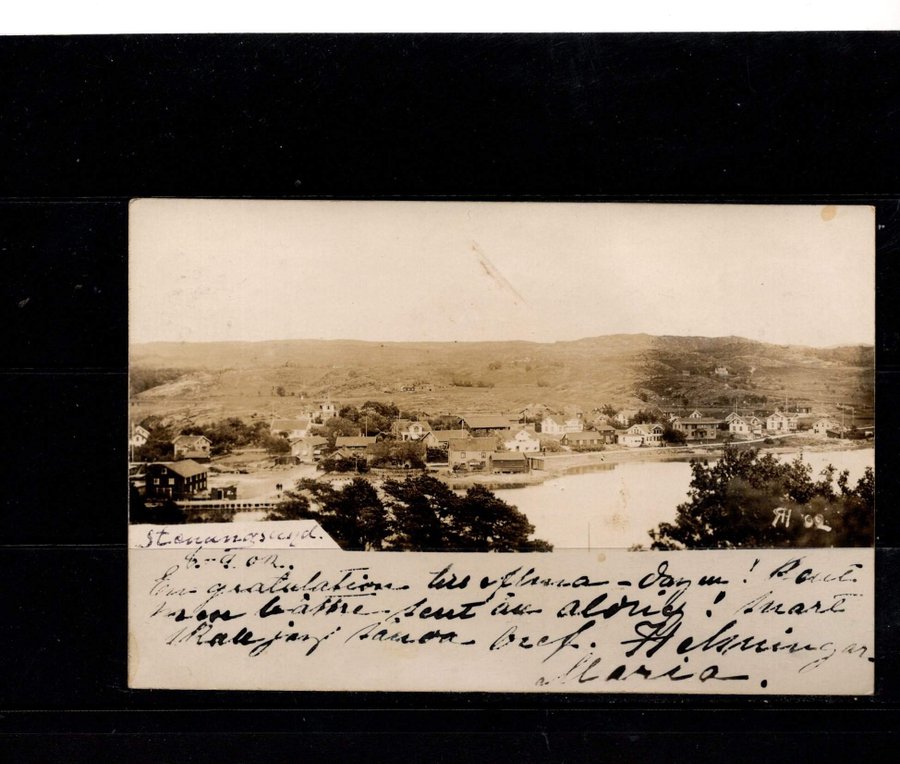 RH 02
Stenungsund.
8-9 02.
En gratulation till Alma-dagen! Sent
men bättre sent än aldrig! Snart
skall jag sända bref. Helsningar
Maria.